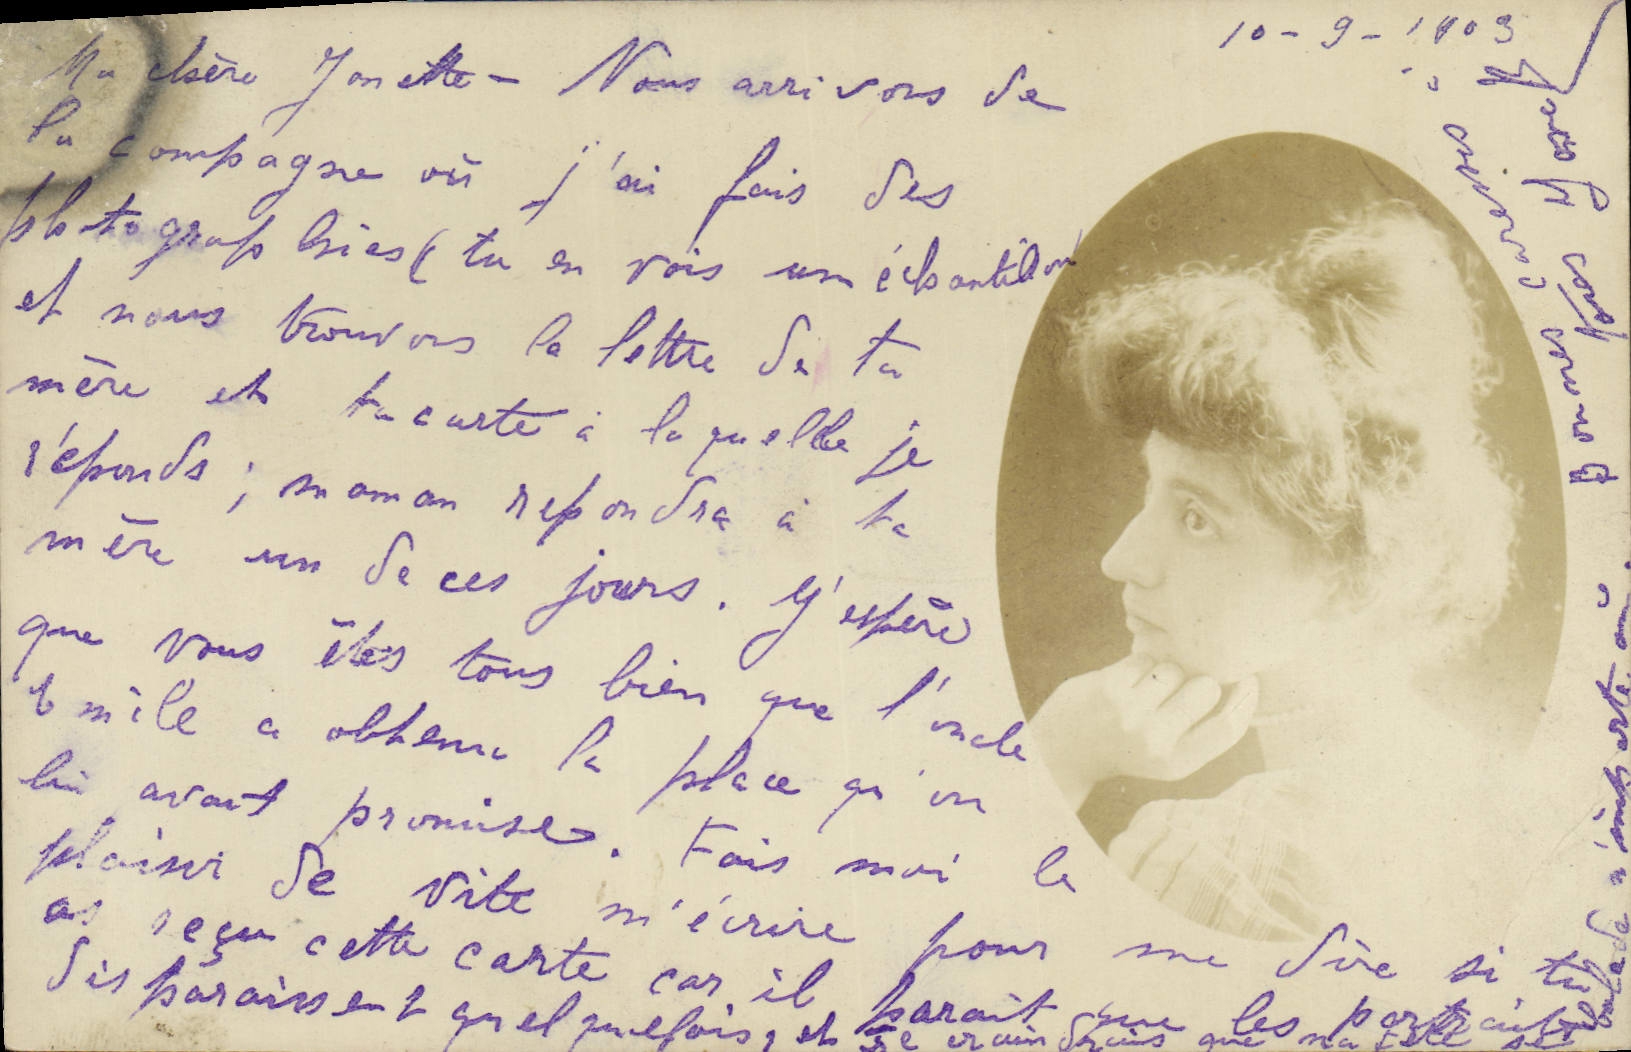 10-9-1903
Ma chère Jonette - Nous arrivons de
la campagne où j'ai fais des
photographies (tu en vois un échantillon)
et nous trouvons la lettre de ta
mère et ta carte à laquelle je
réponds ; maman repondra à ta
mère un de ces jours. J'espère
que vous êtes tous bien que l'oncle
Emile a obtenu la place qu'on
lui avait promise. Fais moi le
plaisir de vite m'écrire pour me dire si tu
as reçu cette carte car il parait que les portraits
disparaissent quelquefois, et je craindrais que ma tête se
balade n'importe où.
Bonnes caresses à
tous